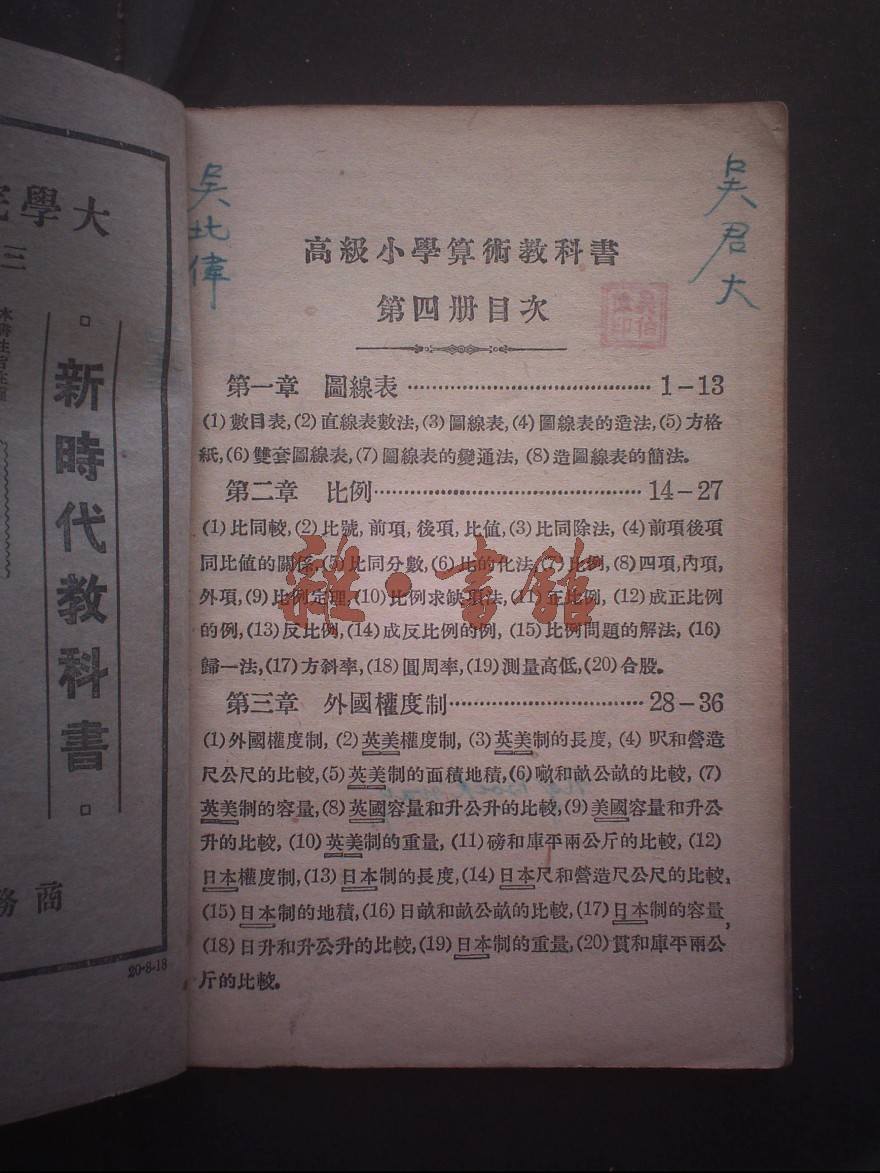 吳君大
吳北偉
高級小學算術教科書
第四册目次
第一章 圖線表…………………………………1-13
(1)數目表,(2)直線表數法,(3)圖線表,(4)圖線表的造法,(5)方格
紙,(6)雙套圖線表,(7)圖線表的變通法,(8)造圖線表的簡法。
第二章 比例……………………………………14-27
(1)比同較,(2)比號,前項,後項,比值,(3)比同除法,(4)前項後項
同比值的關係,(5)比同分數,(6)比的化法,(7)比例,(8)四項,內項,
外項,(9)比例定理,(10)比例求缺項法,(11)正比例,(12)成正比例
的例,(13)反比例,(14)成反比例的例,(15)比例問題的解法,(16)
歸一法,(17)方斜率,(18)圓周率,(19)測量高低,(20)合股。
第三章 外國權度制…………………………28-36
(1)外國權度制,(2)英美權度制,(3)英美制的長度,(4)呎和營造
尺公尺的比較,(5)英美制的面積地積,(6)噉和畝公畝的比較,(7)
英美制的容量,(8)英國容量和升公升的比較,(9)美國容量和升公
升的比較,(10)英美制的重量,(11)磅和庫平兩公斤的比較,(12)
日本權度制,(13)日本制的長度,(14)日本尺和營造尺公尺的比較,
(15)日本制的地積,(16)日畝和畝公畝的比較,(17)日本制的容量,
(18)日升和升公升的比較,(19)日本制的重量,(20)貫和庫平兩公
斤的比較。
雜·書館
大學
三
新時代教科書
商務
20-8-18